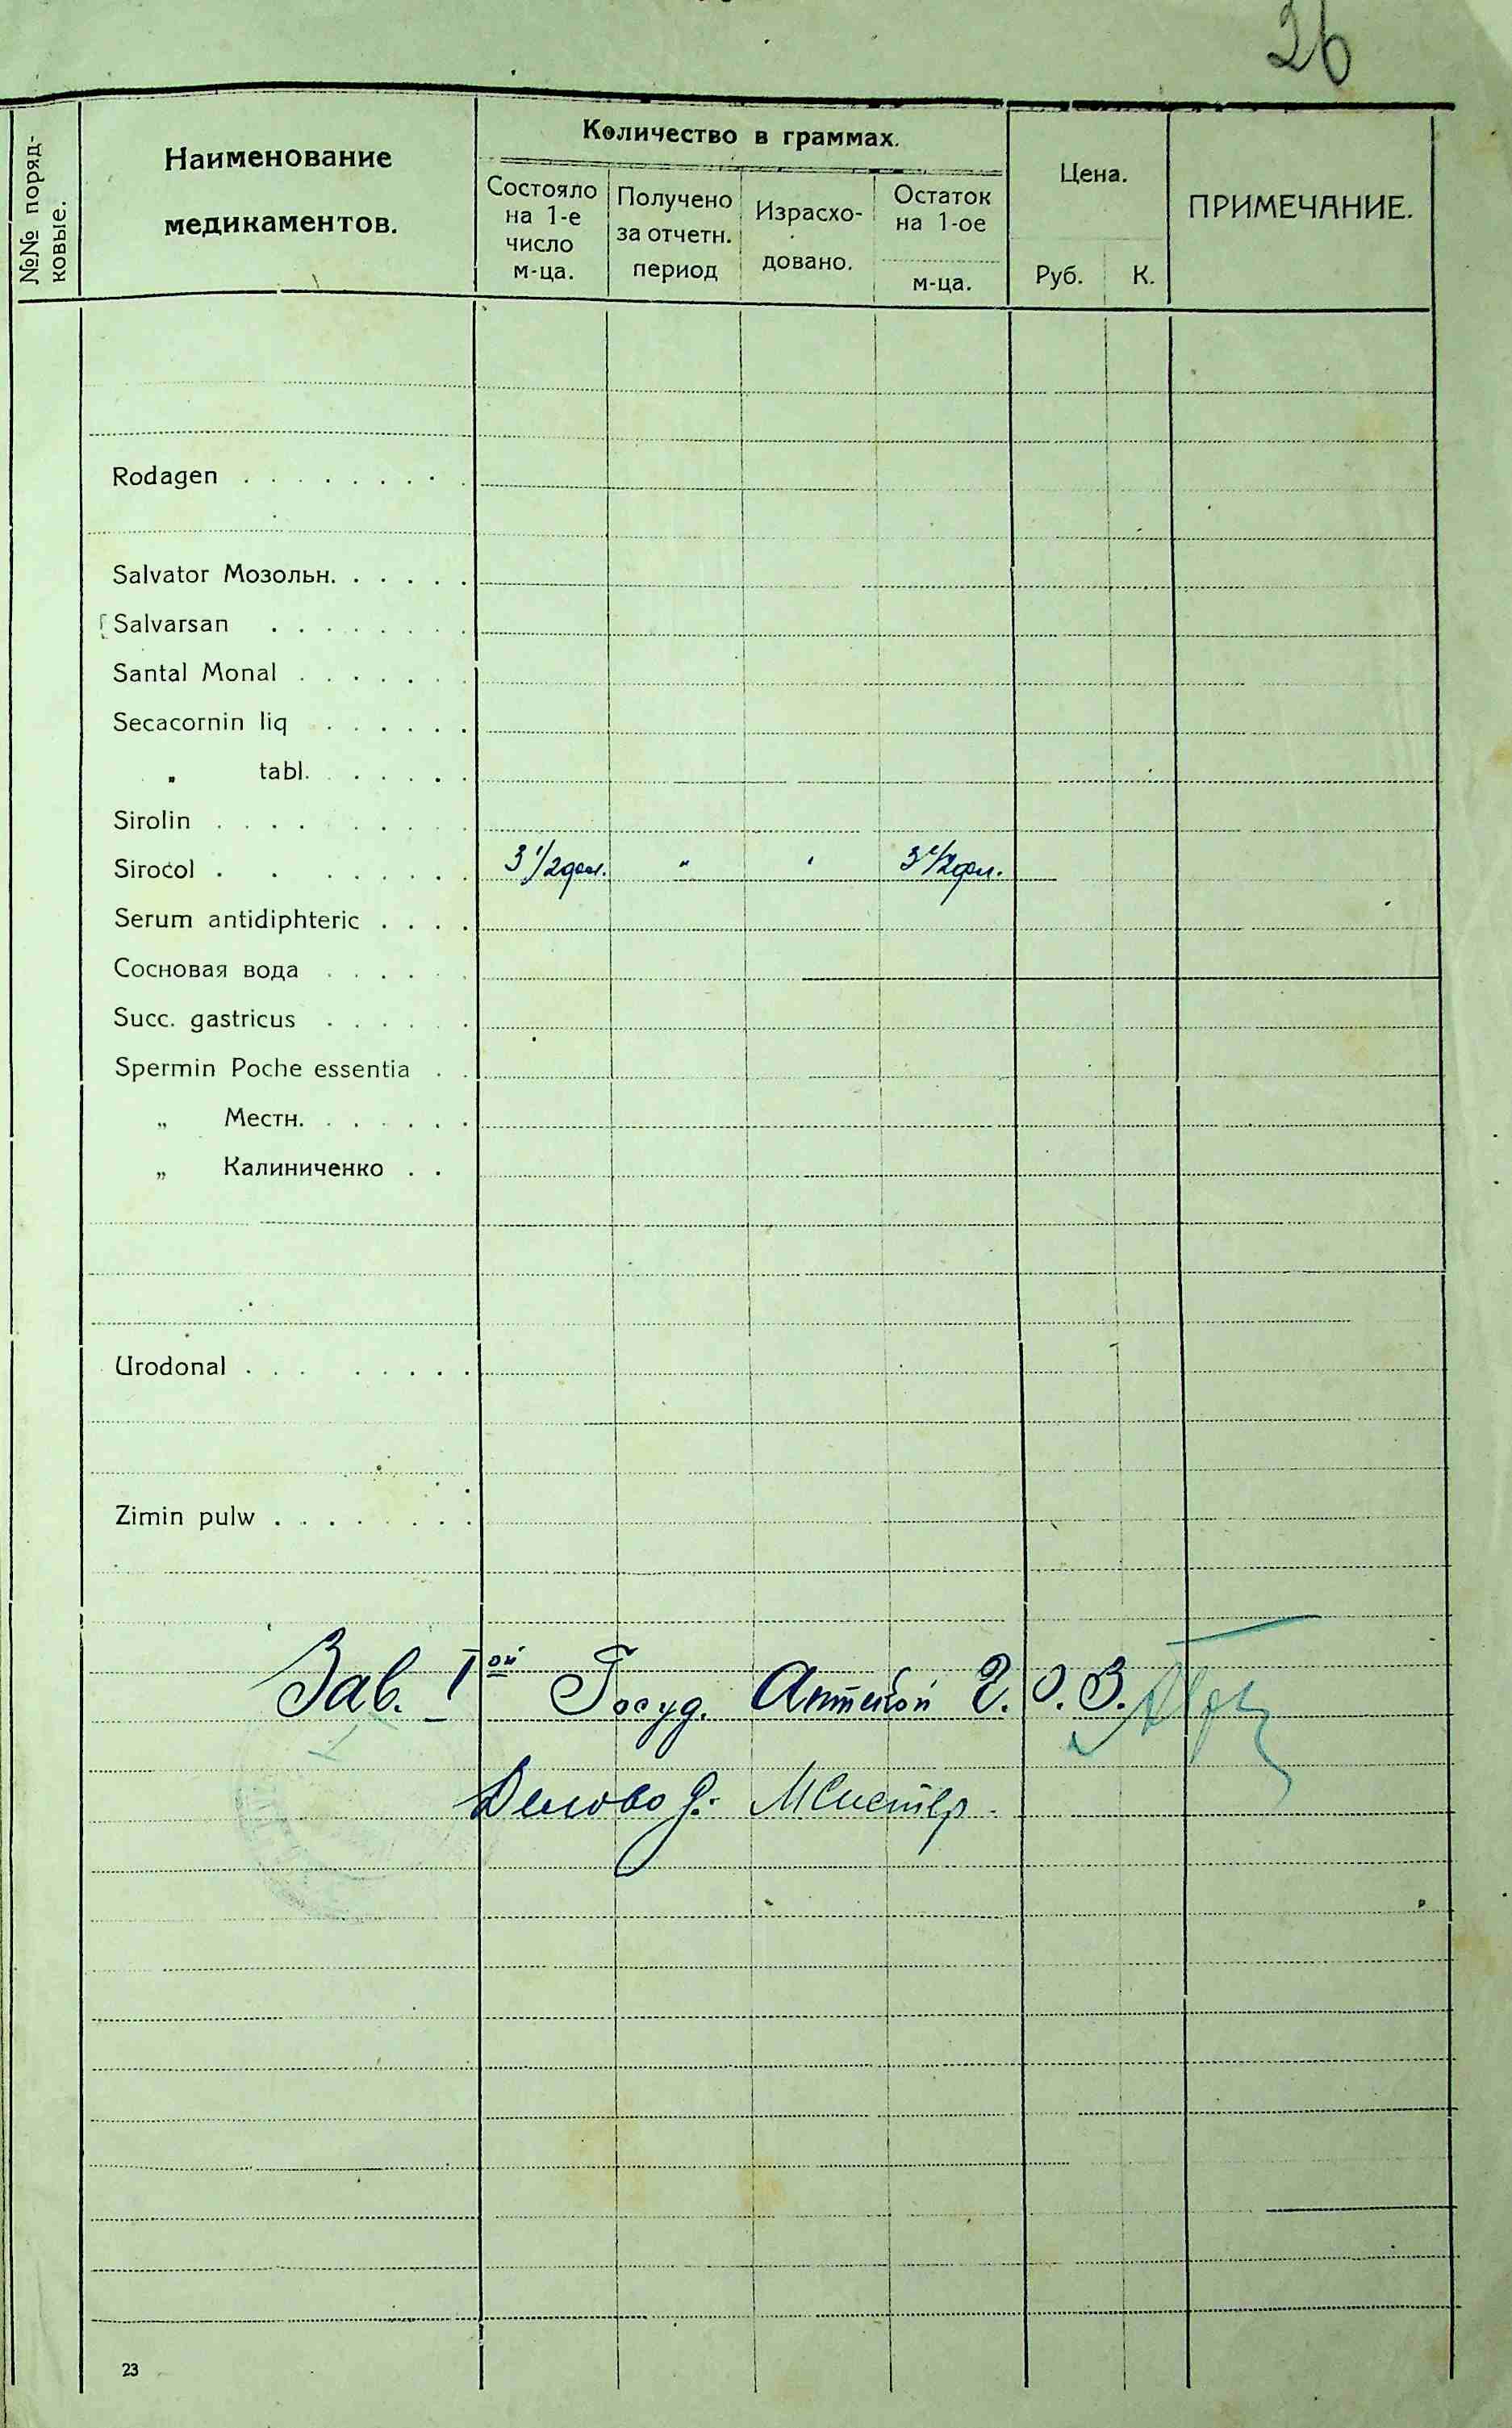 26
№№ поряд-
ковые.
Наименование
медикаментов.
Количество в граммах.
Состояло
на 1-е
число
м-ца.
Получено
за отчетн.
период
Израсхо-
довано.
Остаток
на 1-ое
м-ца.
Цена.
Руб. К.
ПРИМЕЧАНИЕ.
Rodagen
Salvator Мозольн.
Salvarsan
Santal Monal
Secacornin liq
„ tabl.
Sirolin
Sirocol 3 1/2 фл. " " 3 1/2 фл.
Serum antidiphteric
Сосновая вода
Succ. gastricus
Spermin Poche essentia
„ Местн.
„ Калиниченко
Urodonal
Zimin pulw
Зав. Iой Госуд. Аптекой
Деловод:
23